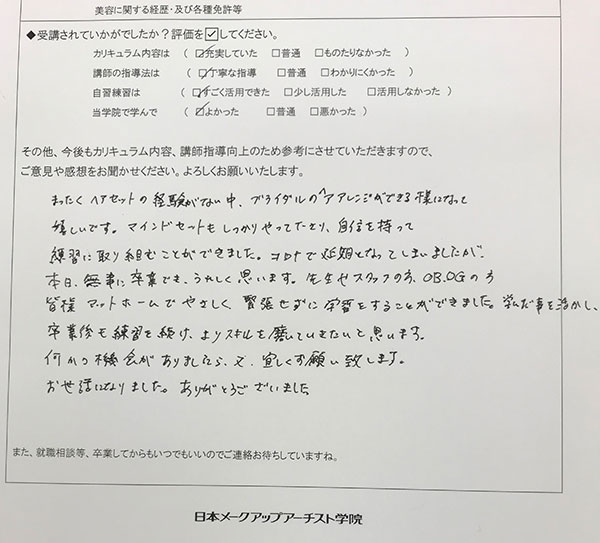 美容に関する経歴・及び各種免許等
◆受講されていかがでしたか？評価を☑してください。
カリキュラム内容は （ ☑充実していた □普通 □ものたりなかった ）
講師の指導法は （ ☑丁寧な指導 □普通 □わかりにくかった ）
自習練習は （ ☑すごく活用できた □少し活用した □活用しなかった ）
当学院で学んで （ ☑よかった □普通 □悪かった ）
その他、今後もカリキュラム内容、講師指導向上のため参考にさせていただきますので、
ご意見や感想をお聞かせください。よろしくお願いいたします。
まったくヘアセットの経験がない中、ブライダルのヘアアレンジができる様になって
嬉しいです。マインドセットもしっかりやってたとり、自信を持って
練習に取り組むことができました。コロナで延期となってしまいましたが、
本日、無事に卒業でき、うれしく思います。先生やスタッフの方、OB.OGの方
皆様 アットホームでやさしく、緊張せずに学習をすることができました。学んだ事を活かし、
卒業後も練習を続け、よりスキルを磨いていきたいと思います。
何かの機会がありましたら、又、宜しくお願い致します。
お世話になりました。ありがとうございました
また、就職相談等、卒業してからもいつでもいいのでご連絡お待ちしていますね。
日本メークアップアーチスト学院